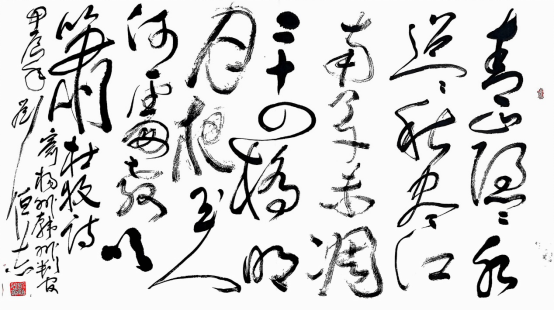 青山隐隐水
迢迢秋尽江
南草未凋
二十四橋明
月夜玉人
何處教吹
箫 杜牧诗
寄扬州韩绰判官
甲辰年